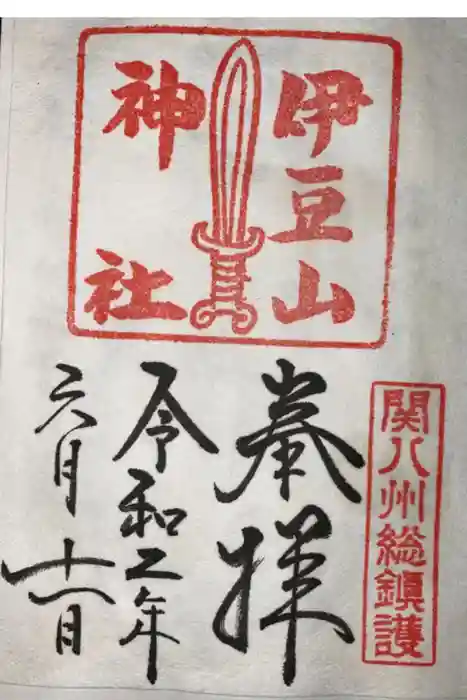 伊豆山
神社
関八州総鎮護
奉拝
令和二年
六月十日